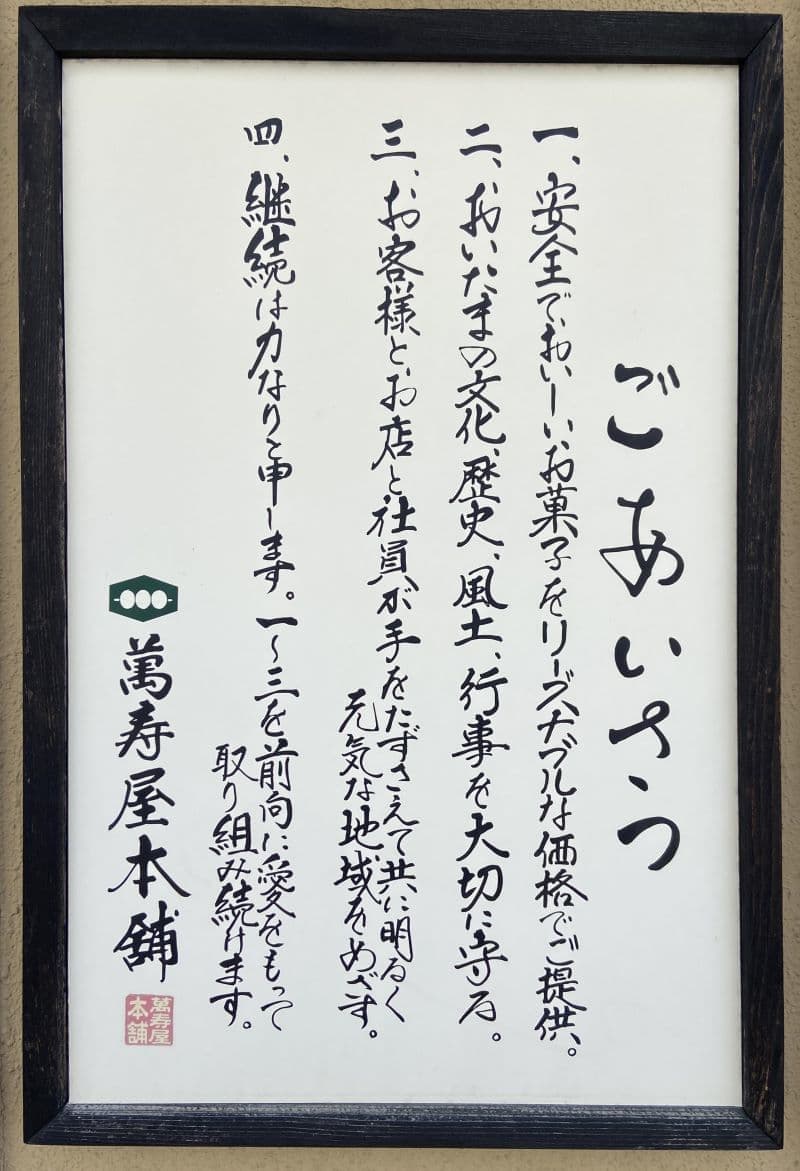 ごあいさつ
一、安全でおいしいお菓子をリーズナブルな価格でご提供。
二、おいたまの文化、歴史、風土、行事を大切に守る。
三、お客様とお店と社員が手をたずさえて共に明るく
元気な地域をめざす。
四、継続は力なりと申します。一〜三を前向に愛をもって
取り組み続けます。
萬寿屋本舗
萬寿屋
本舗